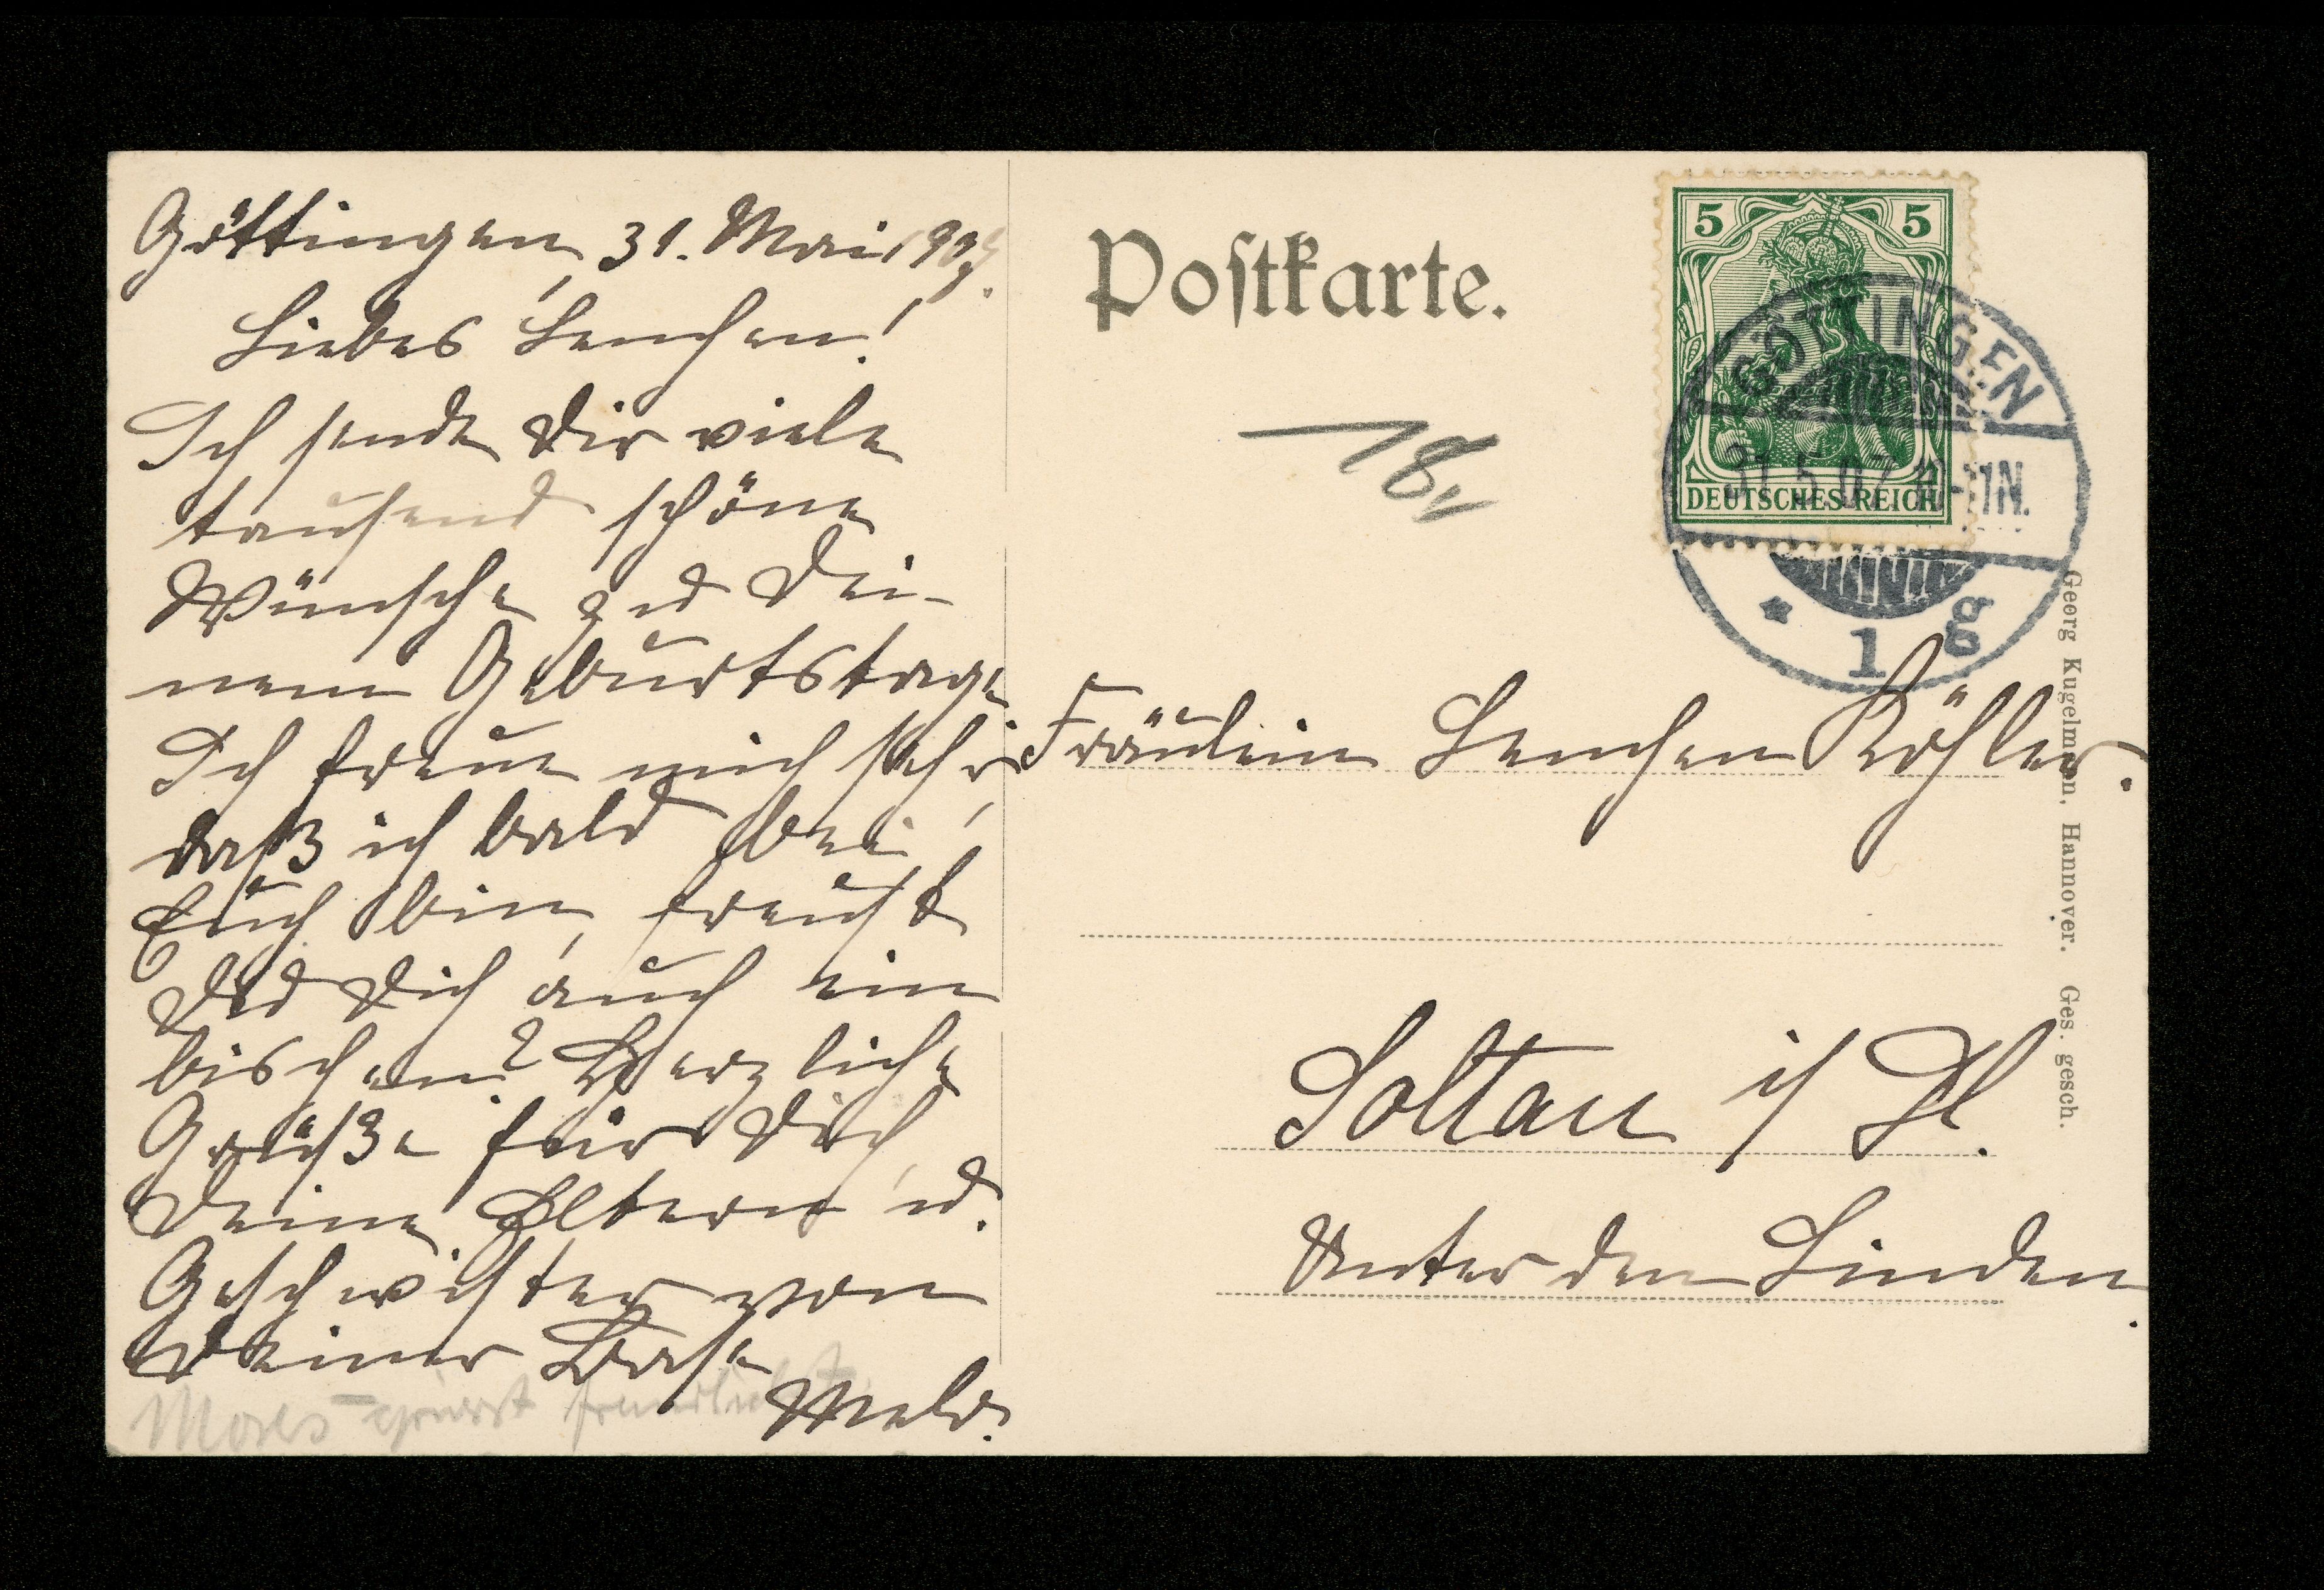 Göttingen, 31. Mai 1907.
Liebes Lenchen!
Ich sende Dir viele
tausend schöne
Wünsche zu Dei-
nem Geburtstage
Ich freue mich sehr,
daß ich bald bei
Euch bin, freust
Du Dich auch ein
bischen? Herzliche
Grüße für Dich,
Deine Eltern u.
Geschwister von
Deiner Base
Mela.
grüsst freundlichst
Postkarte.
18
5 5
DEUTSCHES REICH
GÖTTINGEN
31.5.07
-11N.
* 1 g
Fräulein Lenchen Köhler.
Soltau i/
Unter den Linden.
Georg Kugelmann, Hannover. Ges. gesch.